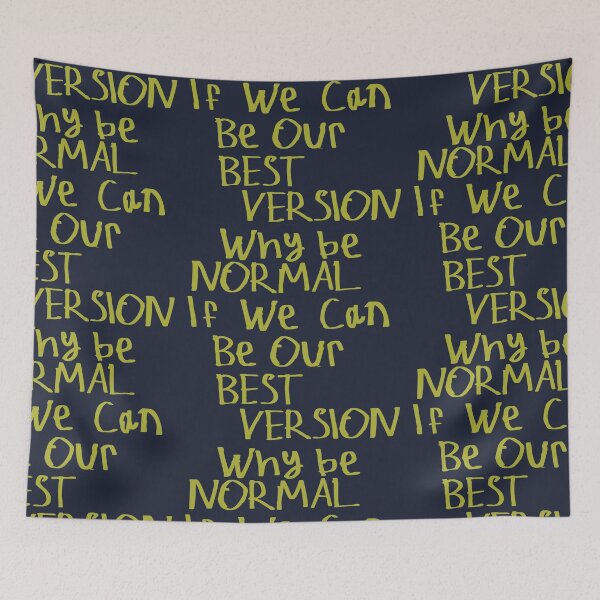 VERSION If We Can VERSION
hy be Be Our Why be
RMAL BEST NORMAL
We Can VERSION If We C
Our Why be Be Our
EST NORMAL BEST
VERSION If We Can VERSION
hy be Be Our Why be
RMAL BEST NORMAL
We Can VERSION If We C
Our Why be Be Our
EST NORMAL BEST